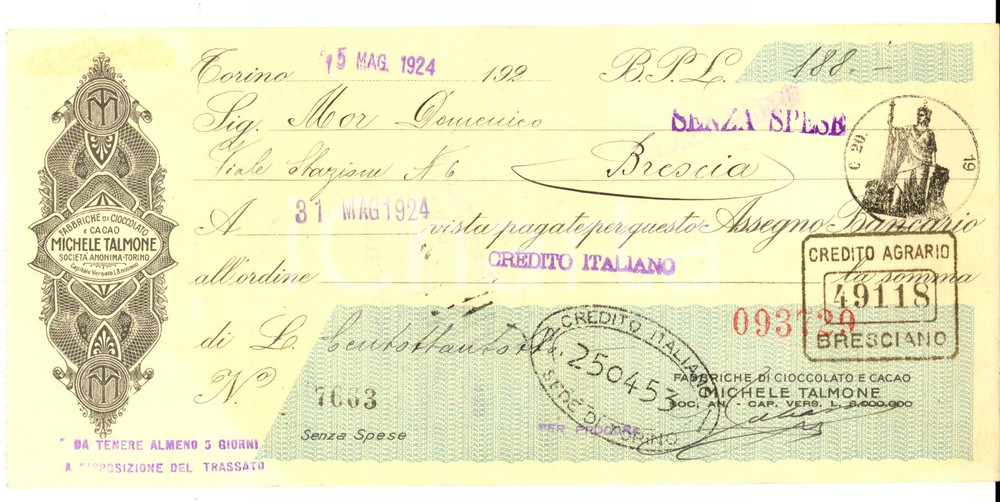 Torino 15 MAG. 1924 192 B.P.L. 188.-
Sig. Mor Domenico SENZA SPESE
Viale Stazione N 6 Brescia
C. 20. 19
A 31 MAG 1924 vista pagate per questo Assegno Bancario
all'ordine CREDITO ITALIANO la somma
di L. Centottantotto
N° 7663
Senza Spese
FABBRICHE DI CIOCCOLATO
E CACAO
MICHELE TALMONE
SOCIETÀ ANONIMA-TORINO
CREDITO AGRARIO
49118
BRESCIANO
093729
CREDITO ITALIANO
250453
SEDE DI TORINO
FABBRICHE DI CIOCCOLATO E CACAO
MICHELE TALMONE
SOC. AN. - CAP. VERS. L. 8.000.000
PER PROCURA
DA TENERE ALMENO 5 GIORNI
A DISPOSIZIONE DEL TRASSATO